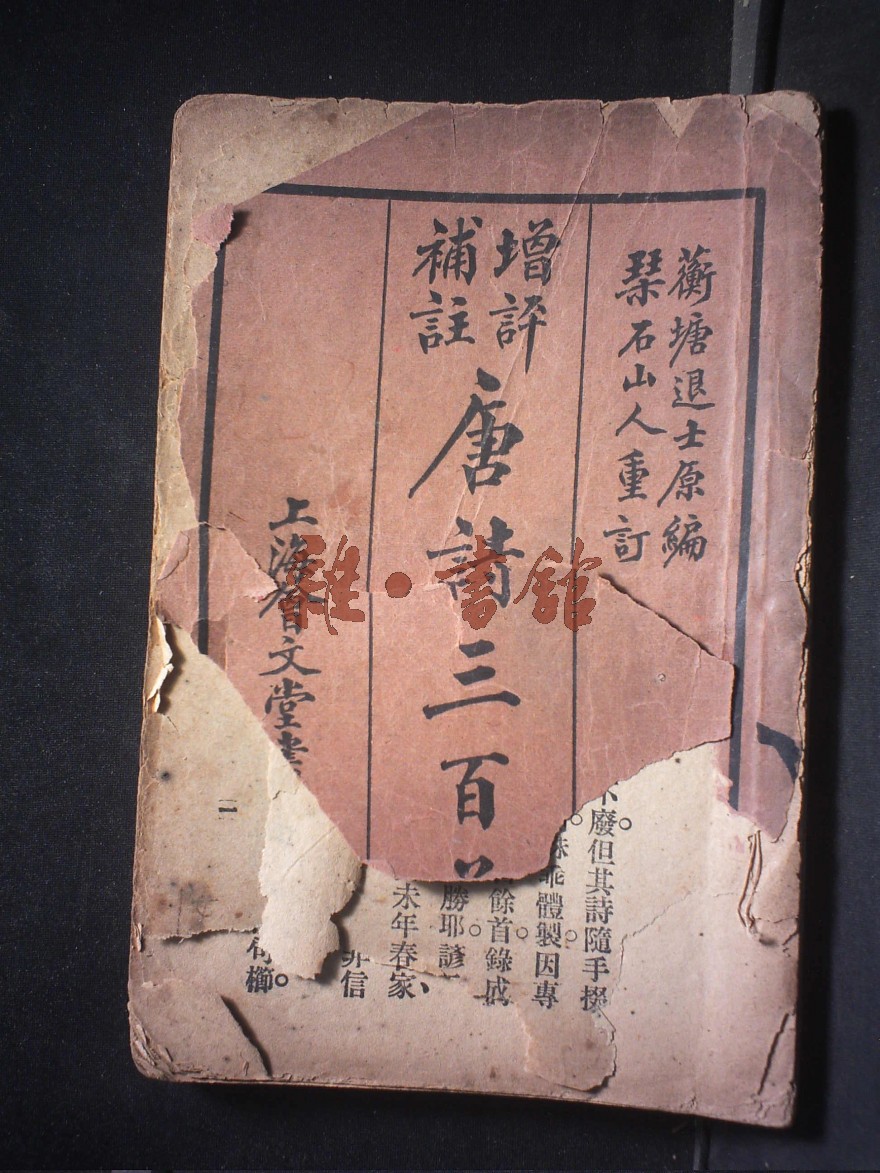 蘅塘退士原編
琹石山人重訂
增評
補註
唐詩三百
上海會文堂書
雜·書館
廢但其詩隨手掇
乖體製因專
餘首錄成
勝耶諺
未年春家
非信
櫛。
二